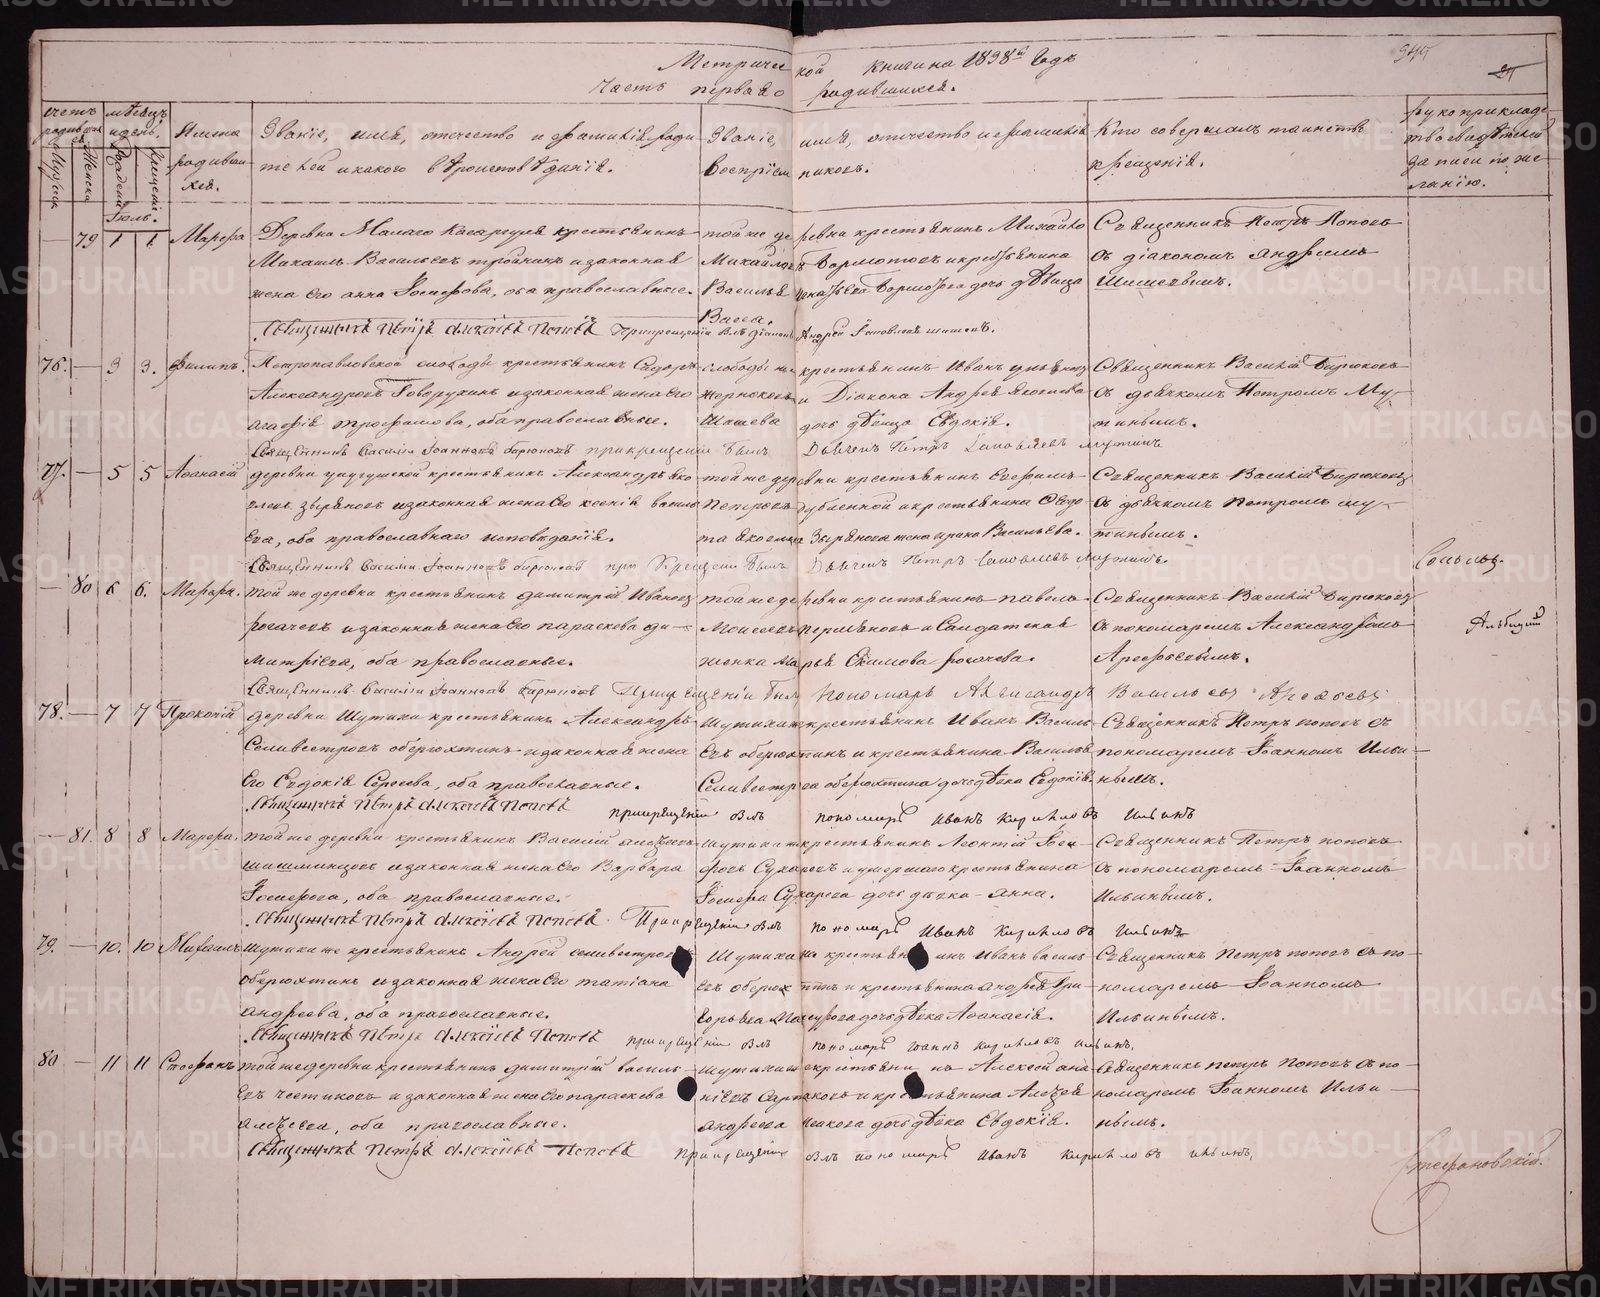 Метрической книги на 1838й Годъ
Часть первая о родившихся.
счетъ родившихся
Мужска
Женска
мѣсяцъ и день,
Рожденія
Крещенія
Имена родившихся.
Званіе, имя, отечество и фамилія родителей и какого вѣроисповѣданія.
Званіе, имя, отечество и фамилія воспріемниковъ.
Кто совершалъ таинство крещенія.
рукоприкладство свидѣтелей записи по желанію.
Іюль.
79 1 1. Марѳа
Деревни Малаго Касаргуля крестьянинъ
Михаилъ Васильевъ тройнинъ и законная
жена его анна Іосифова, оба православные.
той же деревни крестьянинъ Михайло
Михайловъ Бормотовъ и крестьянина
Василья дочь дѣвица
Васса.
Священникъ Петръ Поповъ
съ діакономъ андреемъ
Шишевымъ.
Священникъ Петръ Алексѣевъ Поповъ При крещеніи былъ діаконъ Андрей
76. 3 3. Филипъ.
Петропавловской слободы крестьянинъ Сидоръ
Александровъ Говорухинъ и законная жена его
агафія трофимова, оба православные.
слободы же крестьянинъ Иванъ
и Діакона Андрея Яковлева
Шишева дочь дѣвица Евдокія.
Священникъ Василій Бирюковъ
съ дьячкомъ Петромъ Му-
тинымъ.
Священникъ Василій Іоанновъ Бирюковъ при крещеніи былъ Дьячекъ Петръ мутинъ
77. 5 5 Аѳанасій
деревни крестьянинъ Александръ яко-
влевъ зыряновъ и законная жена его ксенія василь-
ева, оба православнаго исповѣданія.
той же деревни крестьянинъ Ефимъ
Петровъ Дубленной и крестьянина Ѳедо-
та яковлева Зырянова жена ирина Васильева.
Священникъ Василій Бирюковъ
съ дьячкомъ петромъ му-
тинымъ.
Священникъ Василій Іоанновъ Бирюковъ при Крещеніи былъ Дьячекъ Петръ мутинъ.
80 6 6. Марѳа.
той же деревни крестьянинъ димитрій Ивановъ
рогачевъ и законная жена его параскева ди-
митріева, оба православные.
той же деревни крестьянинъ павелъ
Моисеевъ пермяковъ и Салдатская
женка марья Екимова рогачева.
Священникъ Василій Бирюковъ
съ пономаремъ Александромъ
Арефьевымъ.
Священникъ Василій Іоанновъ Бирюковъ При крещеніи былъ Пономарь Александръ Васильевъ Арефьевъ
78. 7 7 Прокопій
деревни Шутихи крестьянинъ Александръ
Селивестровъ оберюхтинъ и законная жена
его Евдокія Сергеева, оба православные.
Шутихи же крестьянинъ Иванъ Василь-
евъ оберюхтинъ и крестьянина Василья
Селивестрова оберюхтина дочь дѣвка Евдокія.
Священникъ Петръ поповъ съ
пономаремъ Іоанномъ Ильи-
нымъ.
Священникъ Петръ Алексѣевъ Поповъ при крещеніи былъ пономарь Иванъ Кириловъ Ильинъ
81. 8 8 Марѳа.
той же деревни крестьянинъ Василій
шишминцовъ и законная жена его Варвара
Іосифова, оба православные.
шутихи же крестьянинъ Леонтій Іоси-
фовъ Сухаревъ и умершаго крестьянина
Іосифа Сухарева дочь дѣвка анна.
Священникъ Петръ поповъ
съ пономаремъ Іоанномъ
Ильинымъ.
Священникъ Петръ Алексѣевъ Поповъ. При крещеніи былъ пономарь Иванъ Кириловъ Ильинъ
79. 10. 10 Михаилъ
шутихи же крестьянинъ Андрей селивестровъ
оберюхтинъ и законная жена его татіана
андреева, оба православные.
Шутихи же крестьянинъ Иванъ василь-
евъ оберюхтинъ и крестьянина андрея Гри-
горьева дочь дѣвка Аѳанасія.
Священникъ Петръ поповъ съ по-
номаремъ Іоанномъ
Ильинымъ.
Священникъ Петръ Алексѣевъ Поповъ при крещеніи былъ пономарь Іоаннъ Кириловъ ильинъ.
80 11 11 Стефанъ
той же деревни крестьянинъ димитрій василь-
евъ честиковъ и законная жена его параскева
алексѣева, оба православные.
шутихи же крестьянинъ Алексѣй
и крестьянина Алексѣя
андреева дочь дѣвка Евдокія.
священникъ петръ Поповъ съ по-
номаремъ Іоанномъ Ильи-
нымъ.
Священникъ Петръ Алексѣевъ Поповъ При крещеніи былъ пономарь Иванъ Кириловъ ильинъ.
Стефановскій.
METRIKI.GASO-URAL.RU